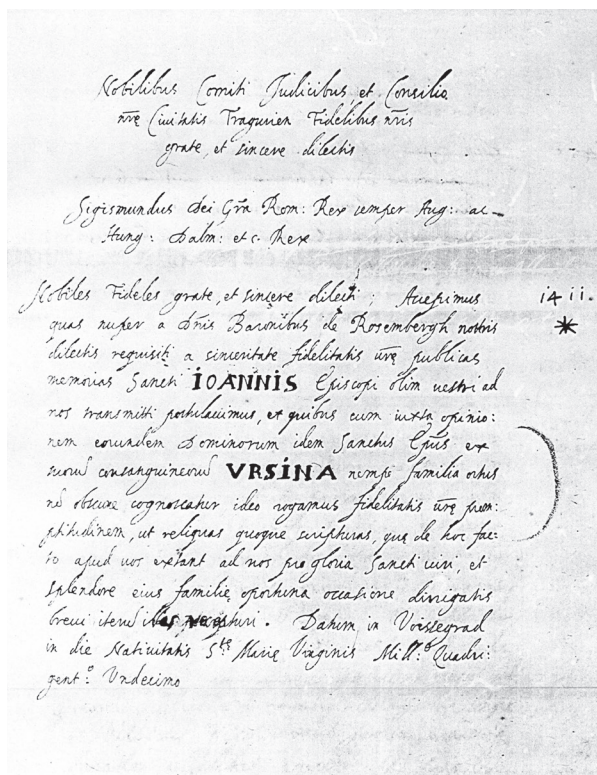 Nobilibus Comiti Judicibus et Consilio
nrẽ Ciuitatis Tragurien Fidelibus nrĩs
grate, et sincere dilectis
Sigismundus Dei Grã Rom: Rex semper Aug: ac
Hung: Dalm: etc. Rex
Nobiles Fideles grate, et sincere dilecti; Accepimus 1411.
quas nuper a Dnĩs Baronibus de Rosembergh nostris *
dilectis requisiti a sinceritate fidelitatis urẽ publicas
memorias Sancti IOANNIS Episcopi olim uestri ad
nos transmitti postulauimus, ex quibus cum iuxta opinio:
nem eorundem Dominorum idem Sanctus Epũs ex
suorũ consanguineorũ VRSINA nempe familia ortus
nõ obscure cognoscatur ideo rogamus fidelitatis urẽ prom:
ptitudinem, ut reliquas quoque scripturas, quę de hoc fac:
to apud uos extant ad nos pro gloria Sancti uiri, et
splendore eius familię oportuna occasione dirigatis
breui iterũ. Datum in Vissegrad
in die Natiuitatis S.te Marie Virginis Mill.o Quadri:
gent.o Undecimo